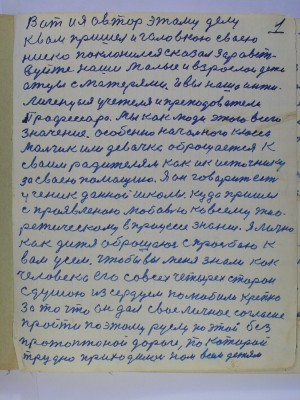 1
Вот и я автор этому делу
К вам пришел и головкою своею
ниско поклонился сказал Здравст-
вуйте наши Малые и взрослые дети
отцы с матерями. И вы наш
учетеля и преподователя
Прадессара. Мы как люди этого всего
значение. Особенно началного класса
Малчик или девачка оброщается к
своим радителям как ик источнику
засваею помащию. А он говарит есть
ученик данной школы. Куда пришел
с проявленою Мобавью ковсему тио-
ретическому в процессе знании. Я лично
как дитя оброщаюс с прозбою к
вам усем. Чтобы вы меня знали как
Человека его со всех четырех сторон
с душою из сердцем полюбили крепко
За то что он дал свое личное согласие
пройти поэтому руслу по этой без
протоптоной дороге, По которай
трудно приходится нам всем детям